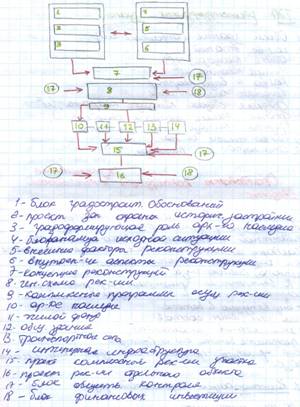 1
2
3
4
5
6
7
17
17
8
18
9
10 11 12 13 14
15
17
16
17
18
1 - блок градостроит. обоснований
2 - проект зон охраны историч. застройки
3 - градоформирующая роль арх-го наследия
4 -
5 - внешние факторы реконструкции
6 - внутрен-ие аспекты реконструкции
7 - концепция реконструкции
8 - ген. схема рек-ции
9 - комплексные программы осущ. рек-ции
10 - ар-ое наследие
11 - жилой фонд
12 - общ. здания
13. Транспортная
14 - инженерная инфраструктура
15 - проект рек-ции участка
16 - проект рек-ии объекта
17 - блок обществ. контроля
18 - блок финансовых инвестиций